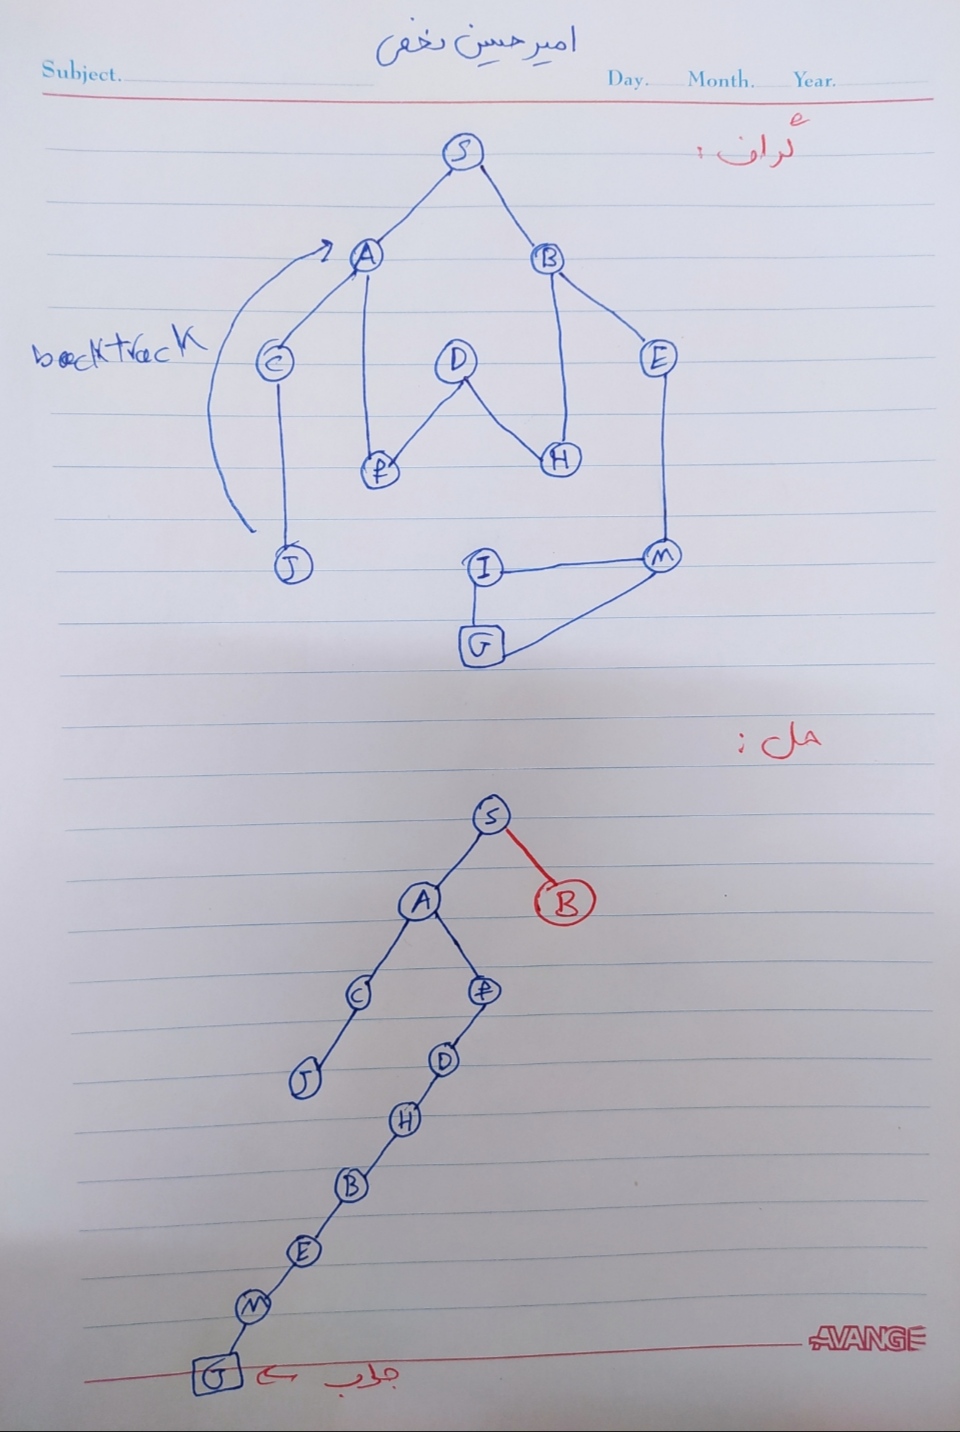 امیرحسین نخفی
Subject.
Day. Month. Year.
گراف :
S
A
B
backtrack
C
D
E
F
H
J
I
M
G
حل :
S
A
B
C
F
J
D
H
B
E
M
G
جواب
AVANGE